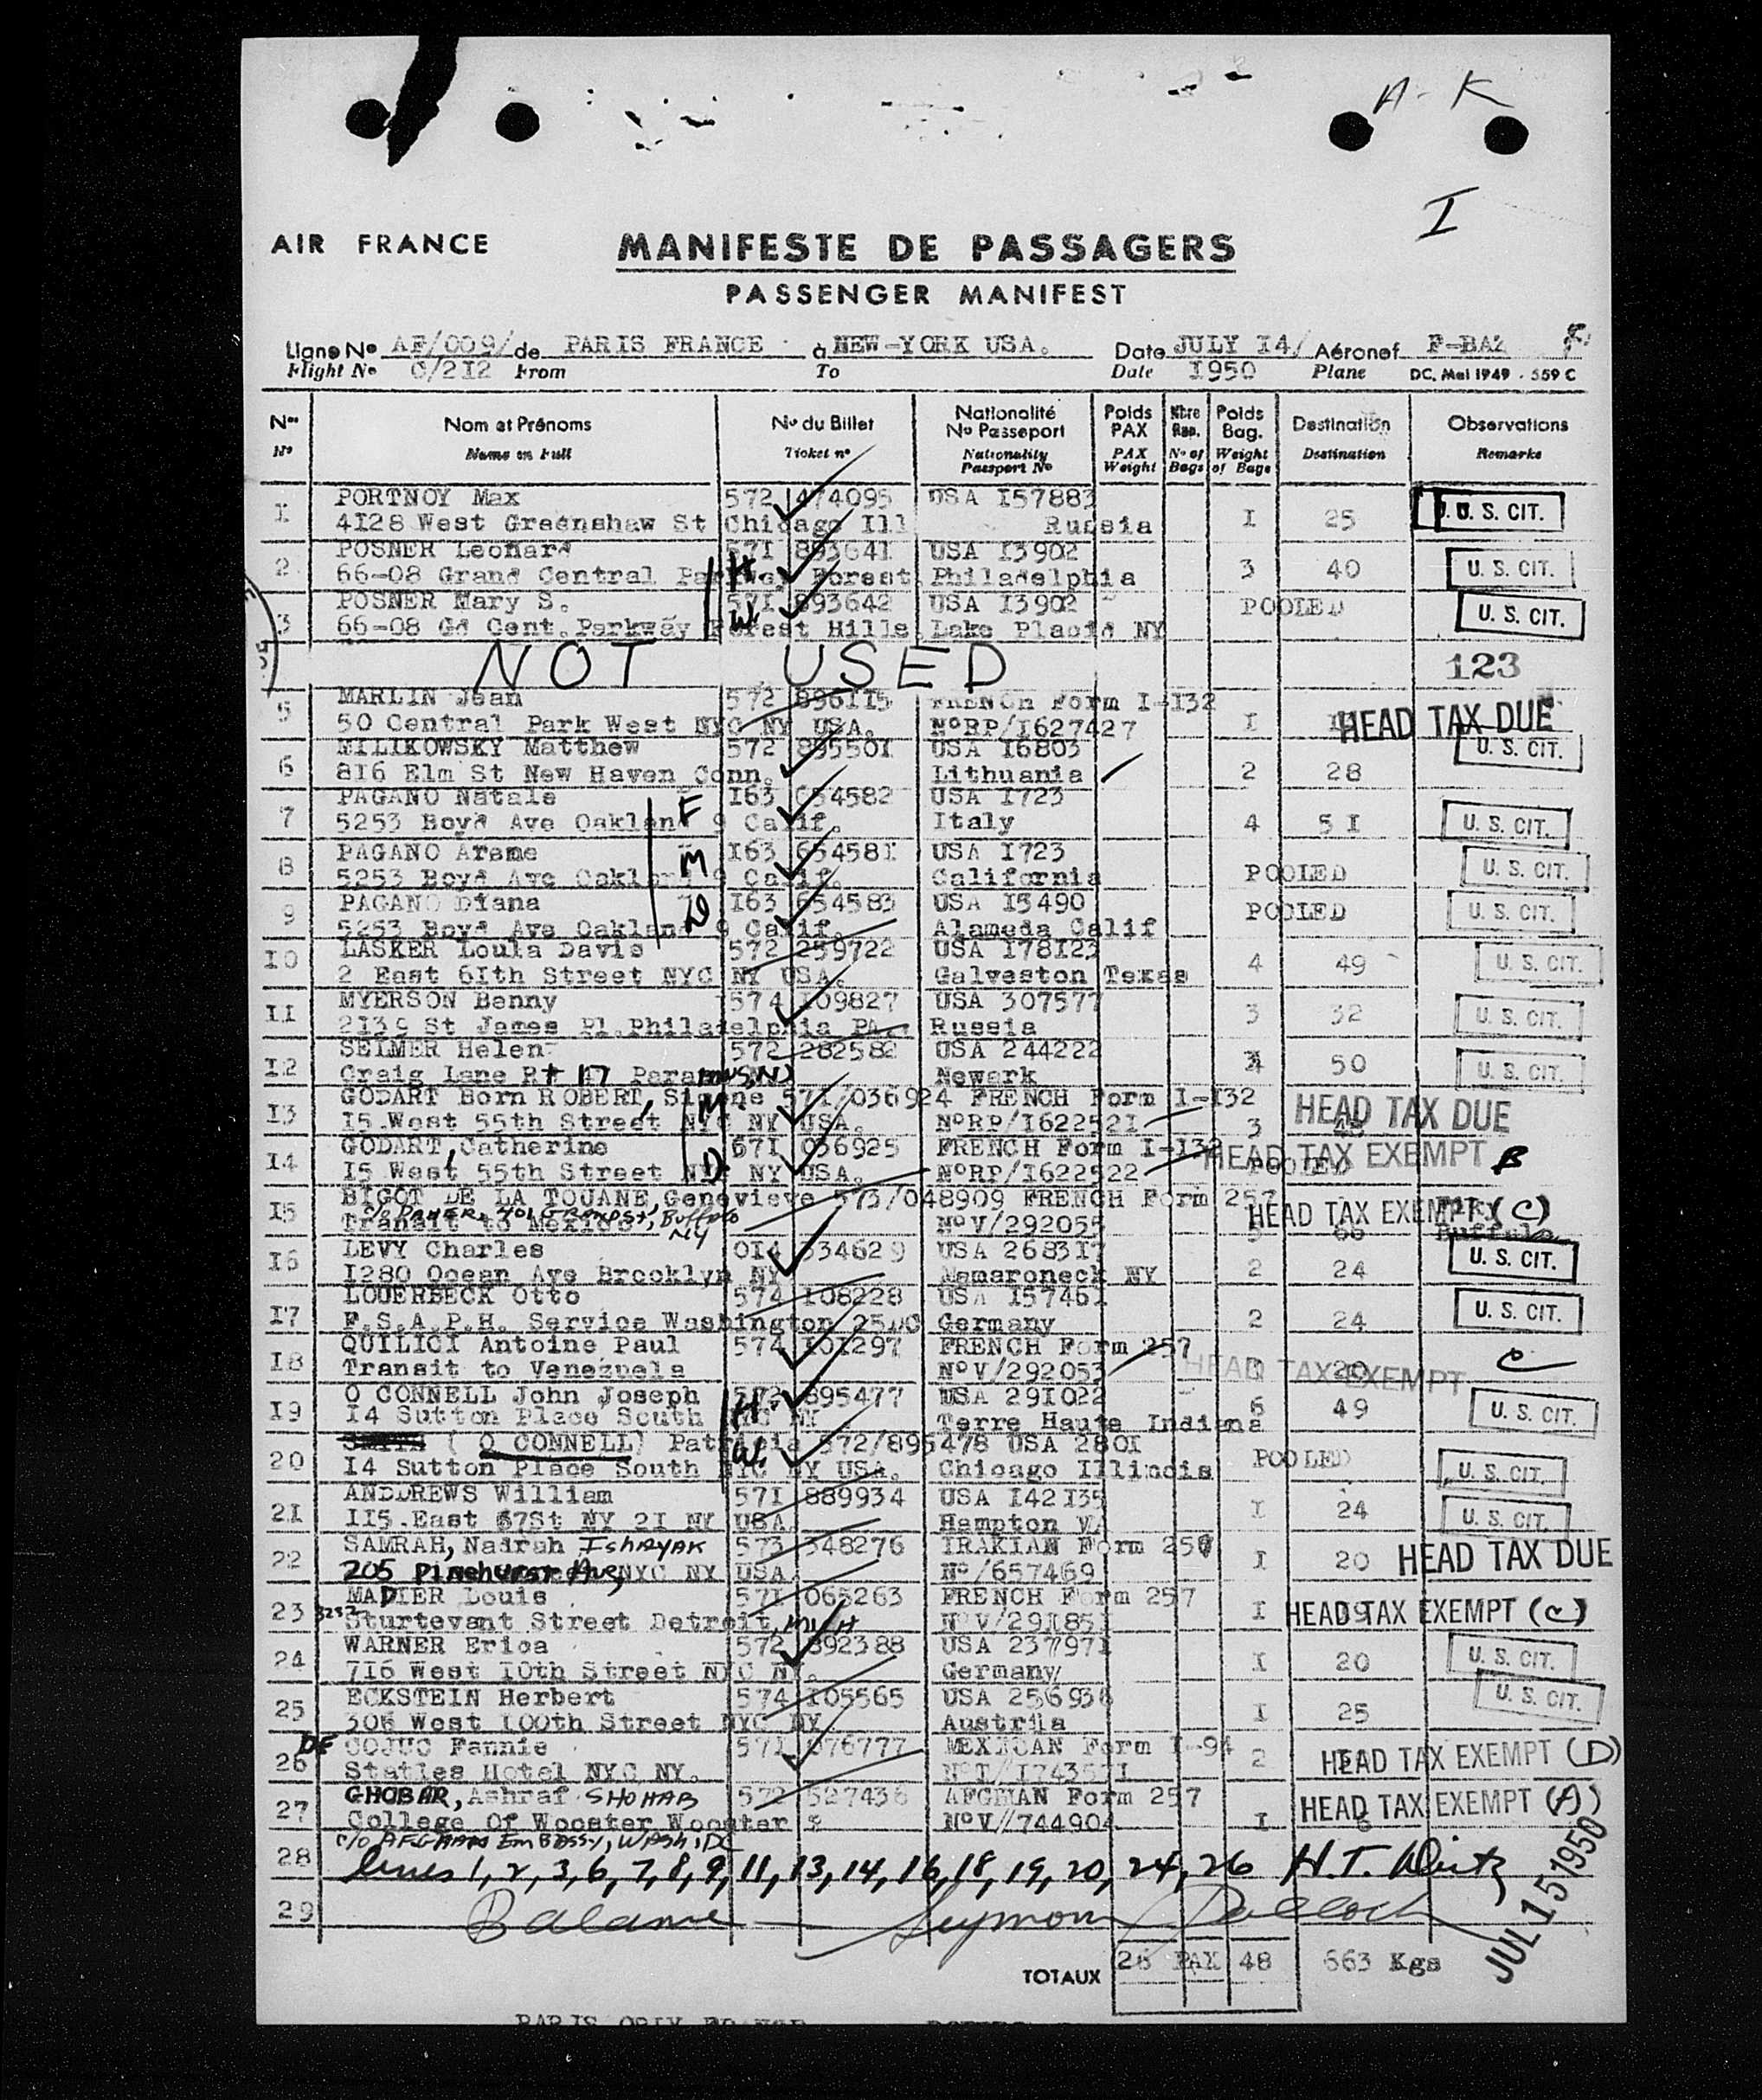 A - K
I
AIR FRANCE
MANIFESTE DE PASSAGERS
PASSENGER MANIFEST
Ligne No AF/009/ de PARIS FRANCE à NEW-YORK USA. Date JULY I4/ Aéronef F-BAZ
Flight No C/2I2 From To Date I950 Plane DC. Mai 1949 - 559 C
Nos Nom et Prénoms No du Billet Nationalité No Passeport Poids PAX Nbre Bag. Poids Bag. Destination Observations
No Name en Full Ticket no Nationality Passport No PAX Weight No of Bags Weight of Bags Destination Remarks
I PORTNOY Max 572 474095 USA I57883 I 25 U. S. CIT.
4I28 West Greenshaw St Chicago Ill Russia
2 POSNER Leonard 57I 893641 USA I3902 3 40 U. S. CIT.
66-08 Grand Central Parkway Forest Philadelphia
H
3 POSNER Mary S. 57I 893642 USA I3902 POOLED U. S. CIT.
66-08 Gd Cent. Parkway Forest Hills Lake Placid NY
W
NOT USED 123
5 MARLIN Jean 572 896II5 FRENCH Form I-I32 I HEAD TAX DUE
50 Central Park West NYC NY USA. NoRP/I627427
6 MILIKOWSKY Matthew 572 895501 USA I6803 2 28 U. S. CIT.
8I6 Elm St New Haven Conn. Lithuania
7 PAGANO Natale I63 654582 USA I723 4 5I U. S. CIT.
5253 Boyd Ave Oakland 9 Calif. Italy
F
8 PAGANO Arame I63 65458I USA I723 POOLED U. S. CIT.
5253 Boyd Ave Oakland 9 Calif. California
M
9 PAGANO Diana I63 654583 USA I5490 POOLED U. S. CIT.
5253 Boyd Ave Oakland 9 Calif. Alameda Calif
D
I0 LASKER Loula Davis 572 259722 USA I78I23 4 49 U. S. CIT.
2 East 6Ith Street NYC NY USA. Galveston Texas
II MYERSON Benny 574 I09827 USA 307577 3 32 U. S. CIT.
2I39 St James Pl.Philadelphia PA. Russia
I2 SELMER Helen 572 282582 USA 244222 50 U. S. CIT.
Craig Lane Rt 17 Paramus, NJ Newark
I3 GODART Born ROBERT, Simone 57I/036924 FRENCH Form I-I32 3 HEAD TAX DUE
I5 West 55th Street NYC NY USA. NoRP/I62252I
M
I4 GODART, Catherine 57I 036925 FRENCH Form I-I32 POOLED HEAD TAX EXEMPT B
I5 West 55th Street NYC NY USA. NoRP/I622522
D
I5 BIGOT DE LA TOUANE, Genevieve 573/048909 FRENCH Form 257 HEAD TAX EXEMPT (C)
Transit to Mexico Buffalo NY NoV/292055 66 Buffalo
I6 LEVY Charles 0I4 334629 USA 2683I7 2 24 U. S. CIT.
I280 Ocean Ave Brooklyn NY Mamaroneck NY
I7 LOUERBECK Otto 574 I08228 USA I5746I 2 24 U. S. CIT.
F.S.A.P.H. Service Washington 25DC Germany
I8 QUILICI Antoine Paul 574 I0I297 FRENCH Form 257 20 HEAD TAX EXEMPT C
Transit to Venezuela NoV/292053
I9 O CONNELL John Joseph 572 895477 USA 29I022 6 49 U. S. CIT.
I4 Sutton Place South NYC NY Terre Haute Indiana
H
20 SMITH ( O CONNELL) Patricia 572/895478 USA 280I POOLED U. S. CIT.
I4 Sutton Place South NYC NY USA. Chicago Illinois
W.
2I ANDREWS William 57I 889934 USA I42I35 I 24 U. S. CIT.
II5.East 67St NY 2I NY USA Hampton VA
22 SAMRAH, Nairah IshAyAK 573 348276 IRAKIAN Form 257 I 20 HEAD TAX DUE
205 Pinehurst Ave, NYC NY USA. No/657469
23 MADIER Louis 57I 065263 FRENCH Form 257 I HEAD TAX EXEMPT (C)
Sturtevant Street Detroit, MICH NoV/29I85I
24 WARNER Erica 572 892388 USA 23797I I 20 U. S. CIT.
7I6 West I0th Street NYC NY. Germany
25 ECKSTEIN Herbert 574 I05565 USA 256936 I 25 U. S. CIT.
306 West I00th Street NYC NY Austria
26 DE COJUC Fannie 57I 076777 MEXICAN Form I-94 2 HEAD TAX EXEMPT (D)
Statles Hotel NYC NY. NoT/I74357I
27 GHOBAR, Ashraf SHOHAB 572 527436 AFGHAN Form 257 I HEAD TAX EXEMPT (A)
College Of Wooster Wooster NoV//744904
c/o AFGHAN EmBassy, WAsh, DC
28 lines 1, 2, 3, 6, 7, 8, 9, 11, 13, 14, 16, 18, 19, 20, 24, 26
29 Balance Seymour
JUL 15 1950
TOTAUX 26 PAX 48 663 Kgs
PARIS ORLY FRANCE